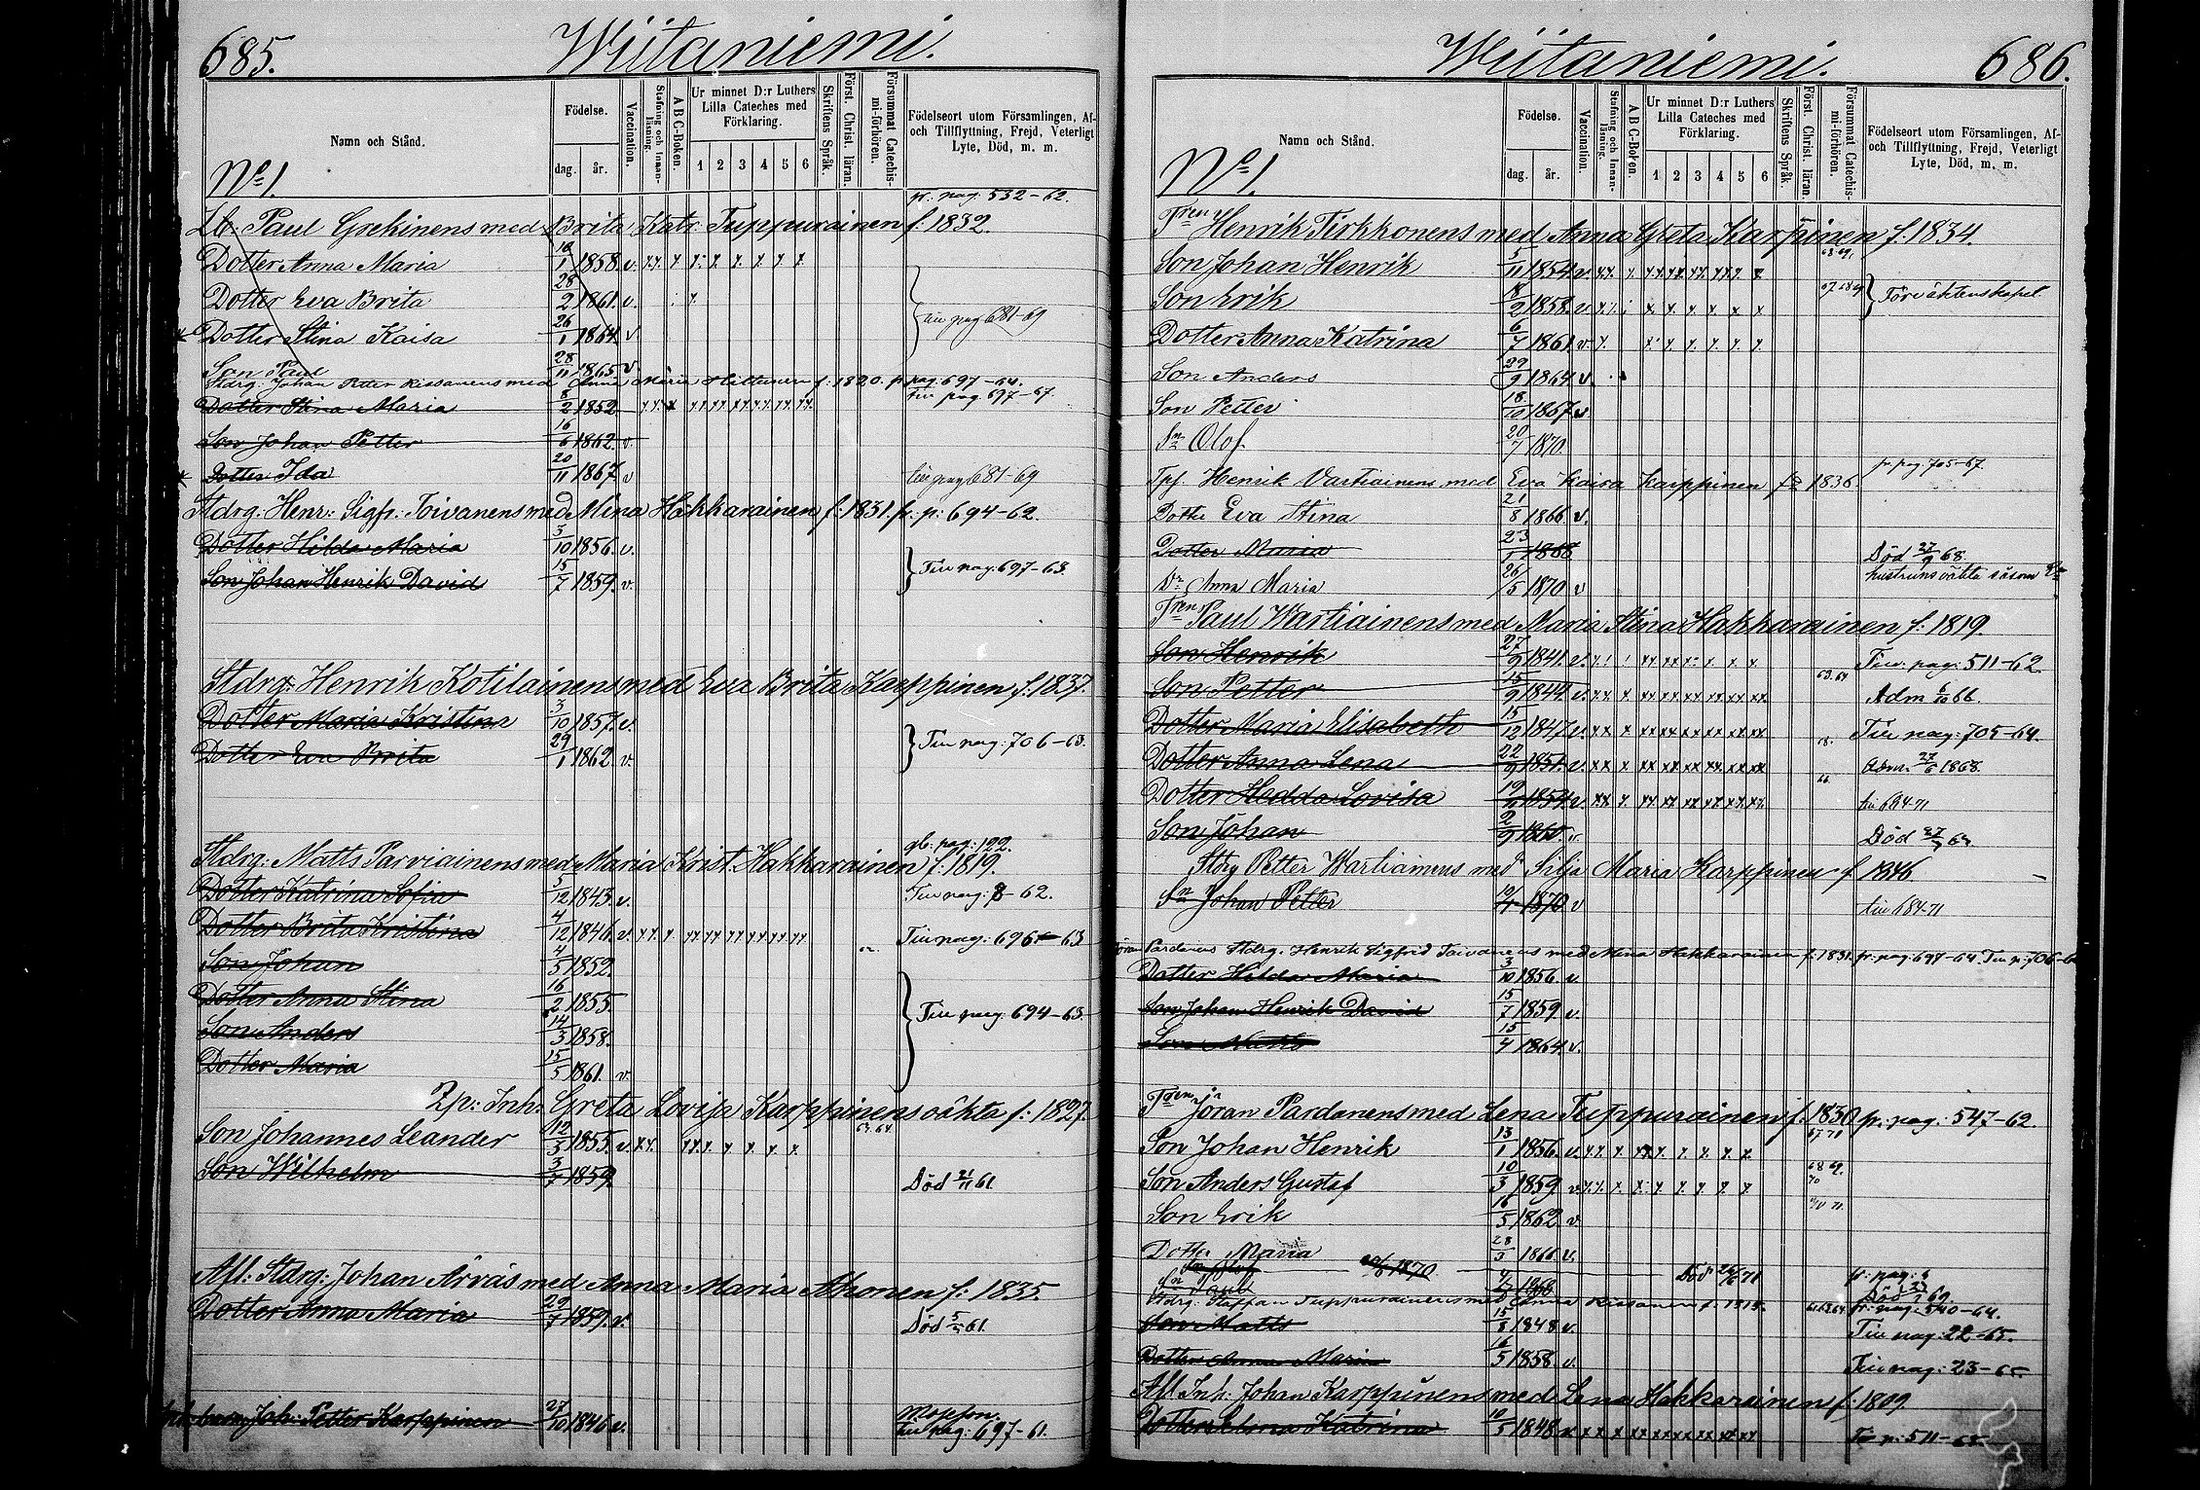 685.
Wiitaniemi.
Namn och Stånd.
Födelse.
dag. år.
Vaccination.
Stafning och Innanläsning.
A B C-Boken.
Ur minnet D:r Luthers Lilla Cateches med Förklaring.
1 2 3 4 5 6
Skriftens Språk.
Först. Christ. läran.
Försummat Catechismi-förhören.
Födelseort utom Församlingen, Af- och Tillflyttning, Frejd, Veterligt Lyte, Död, m. m.
No 1.
fr. pag. 532-62.
Paul Grekinens med Brita Katr: Tuppurainen f: 1832.
Dotter Anna Maria 1858. v.
Dotter Eva Brita 28/2 1861. v.
Dotter Stina Kaisa 26/1 1864 v
till pag 681-69
Son Paul 28/11 1865 v
Stdrg: Johan Petter Kissanens med Anna Maria Hiltunen f: 1820. fr pag: 697-64.
Dotter Stina Maria 8/2 1852 till pag. 697-67.
Son Johan Petter 16/6 1862 v.
Dotter Ida 20/11 1867 v till pag 681-69
Stdrg. Henr: Sigfr: Toivanens med Mina Hakkarainen f: 1831. fr. p: 694-62.
Dotter Hilda Maria 3/10 1856. v.
Son Johan Henrik David 15/7 1859. v.
Till pag: 697-63.
Stdrg: Henrik Kotilainens med Eva Brita Karppinen f. 1837.
Dotter Maria Kristina 3/10 1857. v.
Dotter Eva Brita 29/1 1862. v.
Till pag: 706-63.
gb. pag: 122.
Stdrg: Matts Parviainens med Maria Krist. Hakkarainen f: 1819.
Dotter Katrina Sofia 5/12 1843. v. Till pag: 8-62.
Dotter Brita Kristina 4/12 1846. v. Till pag: 696-63
Son Johan 4/5 1852.
Dotter Anna Stina 16/2 1855
Son Anders 14/3 1858.
Dotter Maria 15/5 1861. v.
Till pag: 694-63.
Inh: Greta Lovisa Karppinens oäkta f: 1827.
Son Johannes Leander 12/3 1855. v. 63.64.
Son Wilhelm 3/7 1859. Död 21/11 61.
Afl: Stdrg: Johan Arväs med Anna Maria Ahonen f: 1835.
Dotter Anna Maria 29/7 1859. v. Död 61.
Joh: Petter Karppinen 27/10 1846 v. till pag: 697-61.
Wiitaniemi.
686.
Namn och Stånd.
Födelse.
dag. år.
Vaccination.
Stafning och Innanläsning.
A B C-Boken.
Ur minnet D:r Luthers Lilla Cateches med Förklaring.
1 2 3 4 5 6
Skriftens Språk.
Först. Christ. läran.
Försummat Catechismi-förhören.
Födelseort utom Församlingen, Af- och Tillflyttning, Frejd, Veterligt Lyte, Död, m. m.
No 1.
Henrik Tirkkonens med Anna Greta Karppinen f: 1834.
Son Johan Henrik 5/11 1854 v. 68 69.
Son Erik 18/2 1858. v. 67 68 69
Före äktenskapet.
Dotter Anna Katrina 6/7 1861 v.
Son Anders 29/9 1864 v.
Son Petter 18/10 1867 v
Sn Olof 20/7 1870.
fr. pag. 705-67.
Henrik Vartiainens med Eva Kaisa Karppinen 1836
Dotter Eva Stina 21/8 1866 v.
Dotter Maria 1868 Död 27/9 68.
hustruns oäkta såsom
Dr Anna Maria 26/5 1870 v
Paul Wartiainens med Maria Stina Hakkarainen f: 1819.
Son Henrik 27/9 1841. v. Till pag: 511-62.
Son Petter 15/9 1844. v. 63.64 Adm 66.
Dotter Maria Elisabeth 15/12 1847. v. Till pag: 705-64.
Dotter Anna Lena 22/9 1851. v. 1868.
Dotter Hedda Lovisa 1854. v. till 684-71
Son Johan 2/9 1860. v. Död
Stdrg Petter Wartiainens med Silja Maria Karppinen f 1846.
Sn Johan Petter 1870 v till 684-71
Stdrg. Henrik Sigfrid Toivanens med Mina Hakkarainen f: 1831. fr. pag: 697-64.
Dotter Hilda Maria 3/10 1856. v.
Son Johan Henrik David 15/7 1859. v.
Son Matts 15/4 1864. v.
Jöran Pardanens med Lena Tuppurainen f. 1830 fr. pag: 547-62.
Son Johan Henrik 13/1 1856. v.
Son Anders Gustaf 10/3 1859 v. 68 69. 70
Son Erik 16/5 1862 v.
Dotter Maria 28/3 1866. v.
Son Olof 1870 Död
Sn Paul 1868 Död 69.
Stdrg: Staffan Tuppurainens med Anna Kissanen f. fr: pag: 540-64.
Son Matts 15/8 1848 v. Till pag: 22-65.
Dotter Anna Maria 16/5 1858. v. Till pag: 23-65.
Afl Inh: Johan Karppinens med Lena Hakkarainen f: 1809
Dotter Katrina 10/5 1848 v. 511-